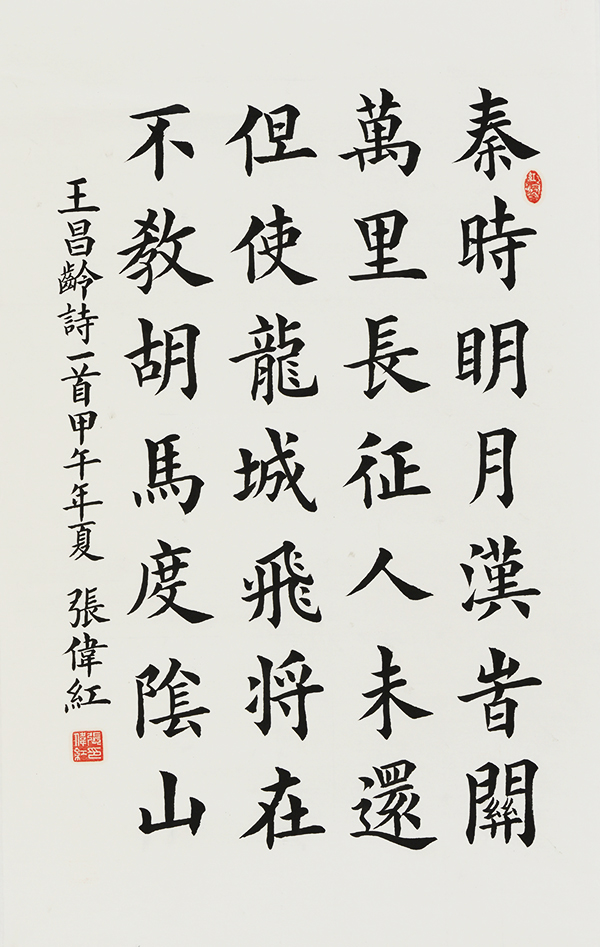 秦時明月漢旹關
萬里長征人未還
但使龍城飛将在
不教胡馬度陰山
王昌齡詩一首甲午年夏 張偉紅
張偉紅印